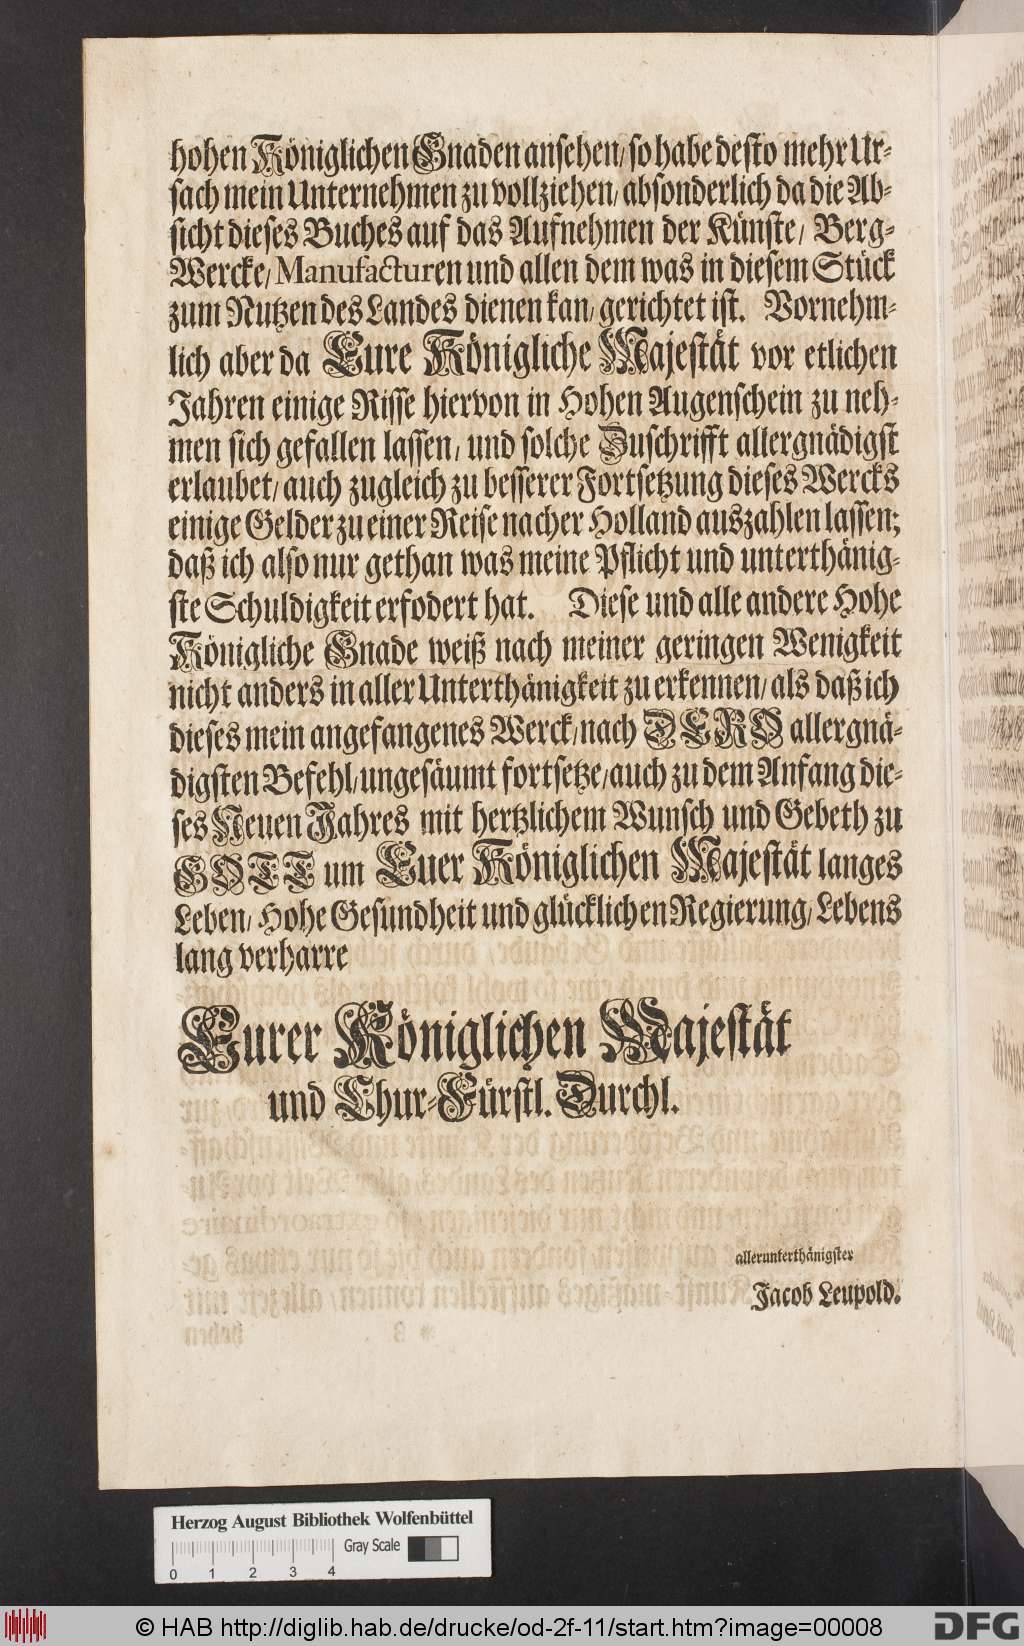 hohen Königlichen Gnaden ansehen/ so habe desto mehr Ur-
sach mein Unternehmen zu vollziehen/ absonderlich da die Ab-
sicht dieses Buches auf das Aufnehmen der Künste/ Berg-
Wercke/ Manufacturen und allen dem was in diesem Stück
zum Nutzen des Landes dienen kan/ gerichtet ist. Vornehm-
lich aber da Eure Königliche Majestät vor etlichen
Jahren einige Risse hiervon in Hohen Augenschein zu neh-
men sich gefallen lassen/ und solche Zuschrifft allergnädigst
erlaubet/ auch zugleich zu besserer Fortsetzung dieses Wercks
einige Gelder zu einer Reise nacher Holland auszahlen lassen;
daß ich also nur gethan was meine Pflicht und unterthänig-
ste Schuldigkeit erfodert hat. Diese und alle andere Hohe
Königliche Gnade weiß nach meiner geringen Wenigkeit
nicht anders in aller Unterthänigkeit zu erkennen/ als daß ich
dieses mein angefangenes Werck/ nach DERO allergnä-
digsten Befehl/ ungesäumt fortsetze/ auch zu dem Anfang die-
ses Neuen Jahres mit hertzlichem Wunsch und Gebeth zu
GOTT um Euer Königlichen Majestät langes
Leben/ Hohe Gesundheit und glücklichen Regierung/ Lebens
lang verharre
Eurer Königlichen Majestät
und Chur-Fürstl. Durchl.
allerunterthänigster
Jacob Leupold.
Herzog August Bibliothek Wolfenbüttel
Gray Scale
0 1 2 3 4
© HAB http://diglib.hab.de/drucke/od-2f-11/start.htm?image=00008
DFG